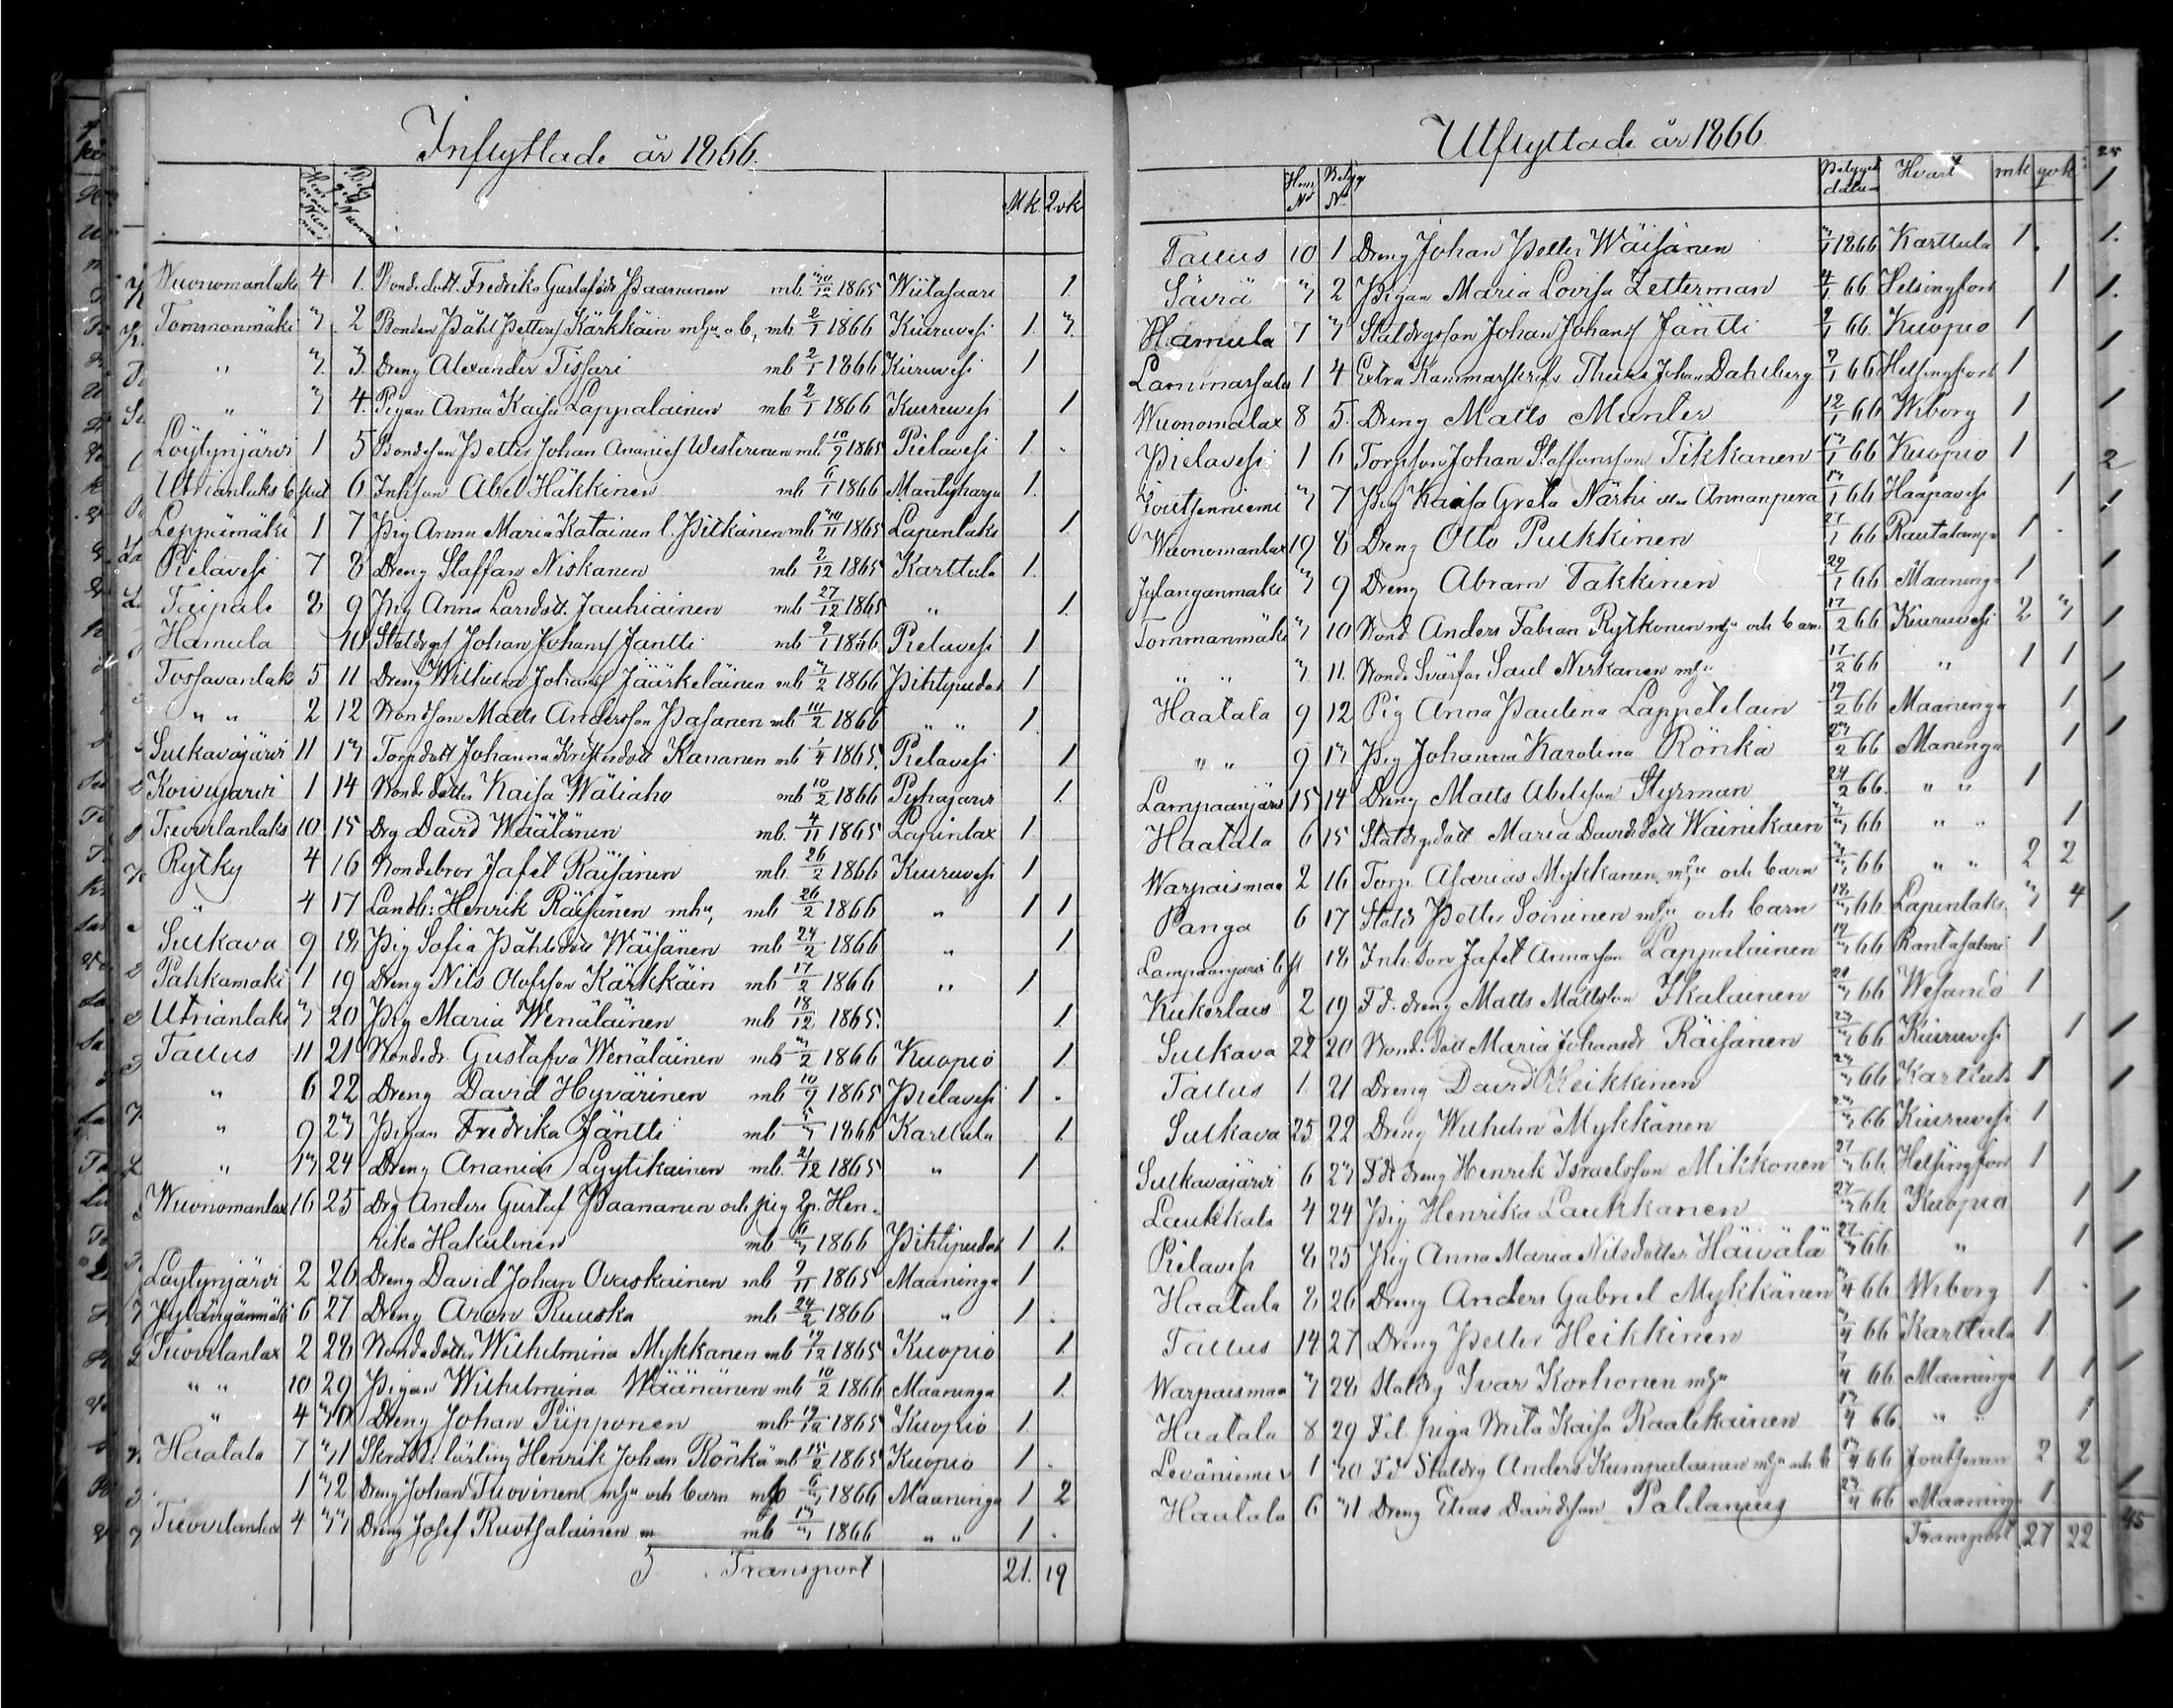 Inflyttade år 1866.
Hemmans Nummer Betygets Nummer Mk. Qvk
Wuonomanlaks 4 1. Bondedott. Fredrika Gustafsdr Paananen mb. 30/12 1865 Wiitasaari 1.
Tommonmäki 3. 2 Bonden Påhl Petters Kärkkäin mhu o b, mb 2/1 1866 Kiuruvesi 1. 3.
" 3. 3. Dreng Alexander Tissari mb 2/1 1866 Kiuruvesi 1
" 3 4. Pigan Anna Kaisa Lappalainen mb 2/1 1866 Kiuruvesi 1
Löytynjärvi 1 5 Bondeson Petter Johan Ananies Westerinen mb 10/9 1865 Pielavesi 1. -
Utrianlaks b 6 Inhson Abel Häkkinen mb 6/1 1866 Mäntyharju 1.
Leppämäki 1 7 Pig Anna Maria Katainen l. Pitkänen mb 30/11 1865 Lapinlaks 1.
Pielavesi 7 8 Dreng Staffan Niskanen mb. 2/12 1865 Karttula 1.
Taipale 8 9 Pig Anna Larsdott. Jauhiainen mb 27/12 1865 " 1.
Hamula 10 Staldrgs Johan Johans Jäntti mb 9/1 1866 Pielavesi 1.
Tossavanlaks 5 11 Dreng Wilhelm Johans Jäärkeläinen mb 3/2 1866 Pihtipudas 1
" " 2 12 Bondson Matts Andersson Pasanen mb 10/2 1866 " " 1.
Sulkavajärvi 11 13 Torpdott Johanna Kristersdott Kananen mb 1/4 1865. Pielavesi 1
Koivujärvi 1 14 Bondedotter Kaisa Wäliaho mb 10/2 1866 Pyhäjärvi 1.
Tuovilanlaks 10. 15 Drg David Wäätänen mb. 4/11 1865 Lapinlax 1.
Rytky 4 16 Bondebror Jafet Räisänen mb. 26/2 1866 Kiuruvesi 1
" 4 17 Landb: Henrik Räisänen mhu, mb 26/2 1866 " 1 1
Sulkava 9 18 Pig Sofia Påhlsdott Wäisänen mb 24/2 1866 " 1.
Pahkamäki 1 19 Dreng Nils Olofsson Kärkkäin mb 17/2 1866 " 1
Utrianlaks 3 20 Pig Maria Wenäläinen mb 18/12 1865. 1.
Tallus 11 21 Bondedr. Gustafva Wenäläinen mb 3/2 1866 Kuopio 1.
" 6 22 Dreng David Hyvärinen mb 10/9 1865 Pielavesi 1 .
" 9 23 Pigan Fredrika Jäntti mb 5/3 1866 Karttula 1.
" 13 24 Dreng Ananias Lyytikainen mb. 21/12 1865 " 1
Wuonomanlax 16 25 Drg Anders Gustaf Paananen och pig Hen-
rika Hakulinen mb 6/3 1866 Pihtipudas 1 1.
Löytynjärvi 2 26 Dreng David Johan Ovaskainen mb 9/11 1865 Maaninga 1
Jylängänmäki 6 27 Dreng Aron Ruuska mb 24/2 1866 " 1 .
Tuovilanlax 2 28 Bondedotter Wilhelmina Mykkänen mb 19/12 1865 Kuopio 1.
" " 10 29 Pigan Wilhelmina Wäänänen mb 10/2 1866 Maaninga 1.
" 4 30 Dreng Johan Piipponen mb 19/12 1865 Kuopio 1.
Haatala 7 31 Skrädd. lärling Henrik Johan Rönkä mb 15/2 1865 Kuopio 1 .
1 32 Dreng Johan Tuovinen mhu och barn mb 6/3 1866 Maaninga 1 2
Tuovilanlax 4 33 Dreng Josef Ruotsalainen mb 13/3 1866 " " 1 .
Transport 21. 19
Utflyttade år 1866
Hem No Betyg No Betygets datum Hvart mk qvk
Tallus 10 1 Dreng Johan Petter Wäisänen 3/1 1866 Karttula 1.
Säviä 3 2 Pigan Maria Lovisa Zetterman 4/1 66 Helsingfors 1
Hamula 7 3 Staldrgsson Johan Johans Jäntti 9/1 66. Kuopio 1
Lammassalo 1 4 Extra Kammarskrifv Thure Johan Dahlberg 9/1 66 Helsingfors 1
Wuonomalax 8 5. Dreng Matts Munter 12/1 66 Wiborg 1
Pielavesi 1 6 Torpson Johan Staffansson Tikkanen 13/1 66 Kuopio 1
Joutsenniemi 3 7 Pig Kaisa Greta Närhi Annanpera 13/1 66 Haapavesi 1
Wuonomanlax 19 8 Dreng Otto Pulkkinen 27/1 66 Rautalampi 1 .
Jylanganmaki 3 9 Dreng Abram Takkinen 29/1 66 Maaninga 1
Tommanmäki 3 10 Bond. Anders Fabian Rytkonen mhu och barn 17/2 66 Kiuruvesi 2 3
" " 3. 11. Bonde Svärson Saul Niskanen mhu 17/2 66 " 1 1
Haatala 9 12 Pig Anna Paulina Lappetelain 19/2 66 Maaninga 1.
" " 9 13 Pig Johanna Karolina Rönkä 23/2 66 Maninga 1
Lampaanjärvi 15 14 Dreng Matts Abelsson Styrman 24/2 66. " " 1
Haatala 6 15 Staldrgsdott Maria Davidsdott Wainikain 3/3 66 " " 1
Warpaismaa 2 16 Torp. Asarias Mykkanen mhu och barn 3/3 66 " " 2 2
Panga 6 17 Staldr Petter Soininen mhu och barn 18/3 66 Lapinlaks 3 4
Lampaanjärvi 18 Inh. son Jafet Annasson Lappalainen 19/3 66 Rantasalmi 1
Kukerlaks 2 19 Fd. dreng Matts Mattsson Ikalainen 21/3 66 Wesanto 1
Sulkava 22 20 Bond. dott Maria Johansdr Räisänen 23/3 66 Kiuruvesi 1
Tallus 1. 21 Dreng David Heikkinen 23/3 66 Karttula 1
Sulkava 25 22 Dreng Wilhelm Mykkänen 23/3 66 Kiuruvesi 1
Sulkavajärvi 6 23 Fd dreng Henrik Israelsson Mikkonen 27/3 66. Helsingfors 1
Laukkala 4 24 Pig Henrika Laukkanen 27/3 66 Kuopio 1
Pielavesi 8 25 Pig Anna Maria Nilsdotter Häivälä 27/3 66 " 1
Haatala 8 26 Dreng Anders Gabriel Mykkänen 3/4 66 Wiborg 1 .
Tallus 14. 27 Dreng Petter Heikkinen 3/4 66 Karttula 1.
Warpaismaa 3 28 Staldrg Ivar Korhonen mhu 7/4 66 Maaninga 1 1
Haatala 8 29 Fd. piga Brita Kaisa Raatikainen 13/4 66. " " 1
Leväniemi 1 30 Fd Staldrg Anders Kumpulainen mhu och b 13/4 66 Joutsenn 2 2
Haatala 6 31 Dreng Elias Davidsson Paldanius 23/4 66 Maaninga 1.
Transport 27 22